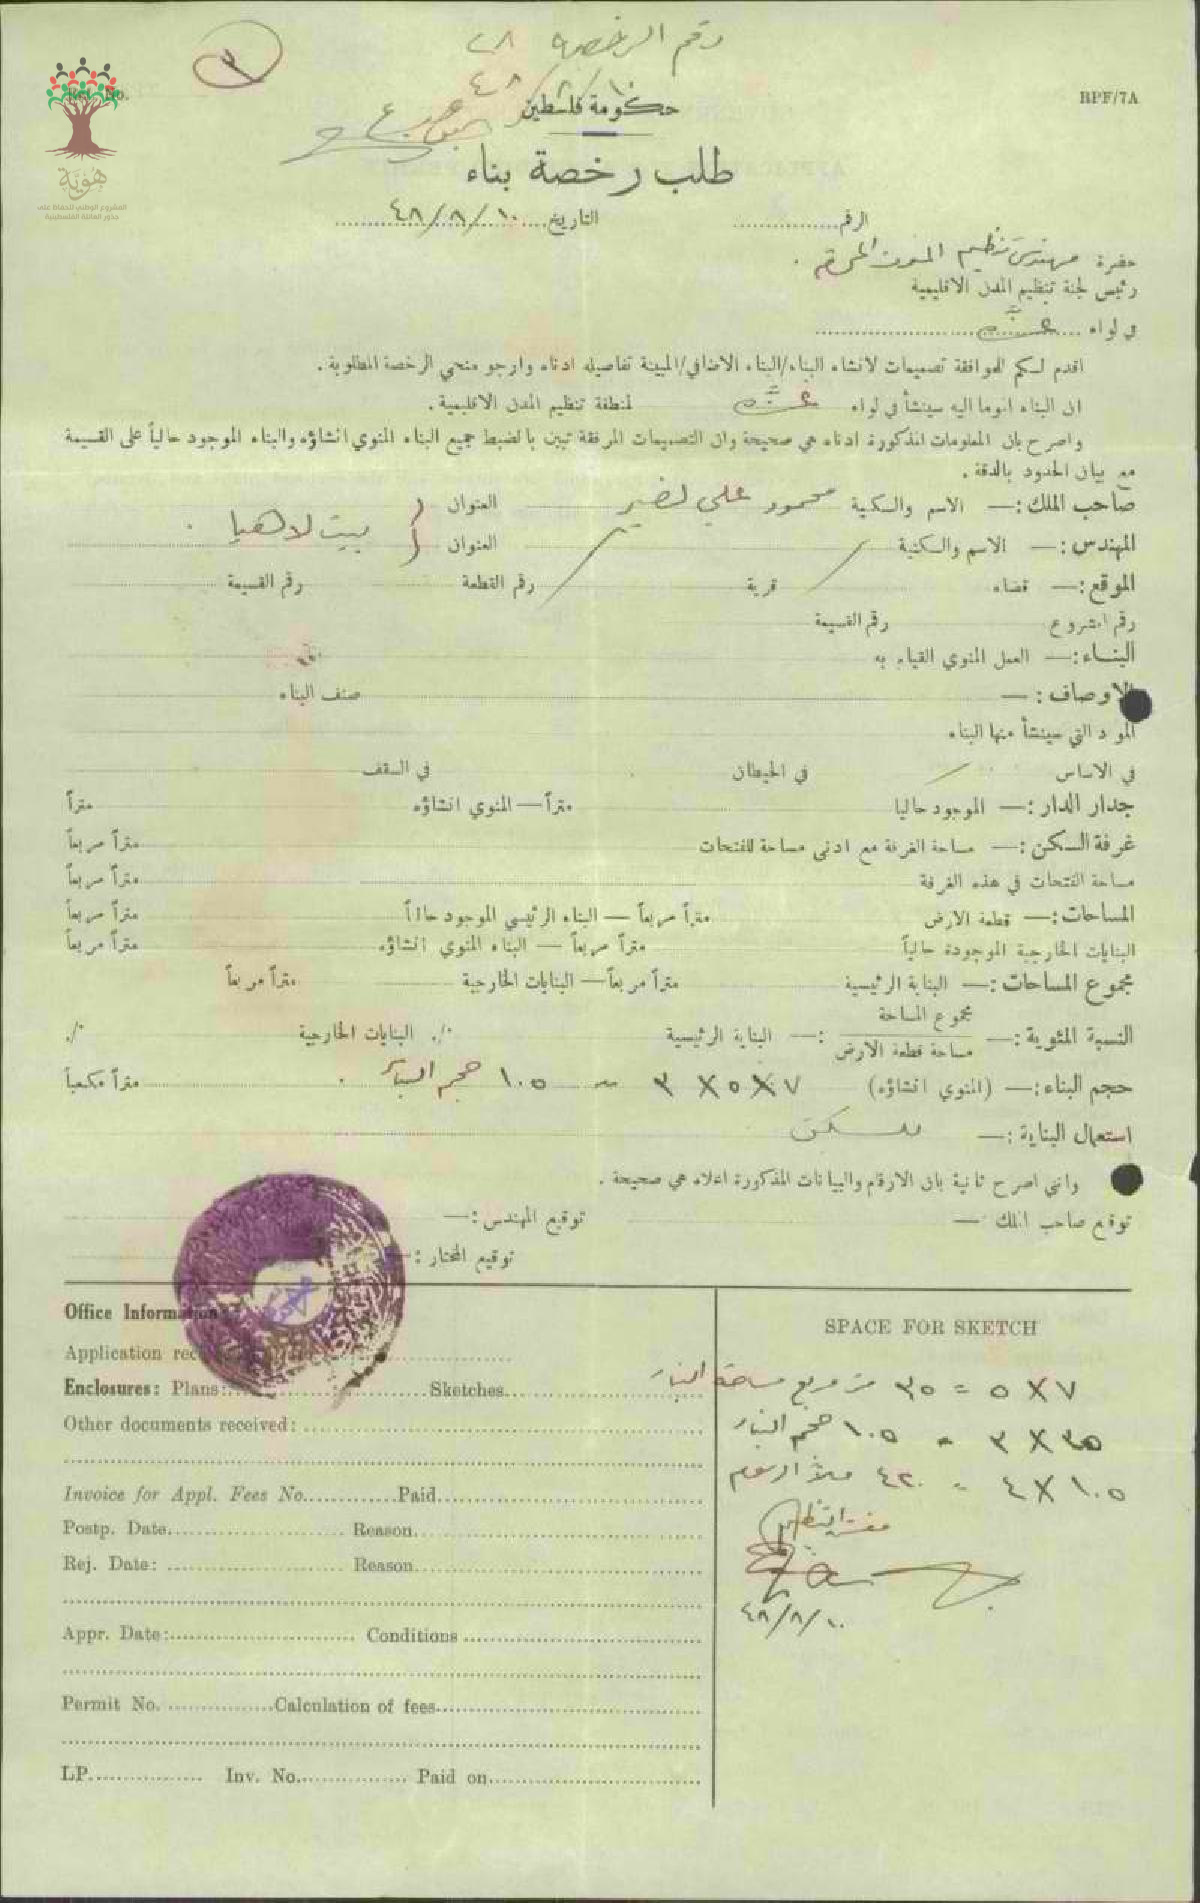 رقم الرخصة ٢٨
٣
هويّة
المشروع الوطني للحفاظ على
جذور العائلة الفلسطينية
RPF/7A
حكومة فلسطين
طلب رخصة بناء
الرقم
التاريخ ٤٨/٨/١٠
حضرة مهندس تنظيم المدن المحترم
رئيس لجنة تنظيم المدن الاقليمية
في لواء غزة
اقدم لكم للموافقة تصميمات لانشاء البناء/البناء الاضافي/المبينة تفاصيله ادناه وارجو منحي الرخصة المطلوبة.
ان البناء الموما اليه سينشأ في لواء غزة لمنطقة تنظيم المدن الاقليمية.
واصرح بان المعلومات المذكورة ادناه هي صحيحة وان التصميمات المرفقة تبين بالضبط جميع البناء المنوي انشاؤه والبناء الموجود حالياً على القسيمة
مع بيان الحدود بالدقة.
صاحب الملك:— الاسم والكنية محمود علي لضير العنوان
المهندس:— الاسم والكنية العنوان بيت لاهيا
الموقع:— قضاء قرية رقم القطعة رقم القسيمة
رقم المشروع رقم القسيمة
البناء:— العمل المنوي القيام به
الاوصاف:— صنف البناء
المواد التي سينشأ منها البناء
في الاساس في الحيطان في السقف
جدار الدار:— الموجود حاليا متراً— المنوي انشاؤه متراً
غرفة السكن:— مساحة الغرفة مع ادنى مساحة للفتحات متراً مربعاً
مساحة الفتحات في هذه الغرفة متراً مربعاً
المساحات:— قطعة الارض متراً مربعاً — البناء الرئيسي الموجود حالياً متراً مربعاً
البنايات الخارجية الموجودة حالياً متراً مربعاً — البناء المنوي انشاؤه متراً مربعاً
مجموع المساحات:— البناية الرئيسية متراً مربعاً— البنايات الخارجية متراً مربعاً
النسبة المئوية:— مجموع المساحة
مساحة قطعة الارض :— البناية الرئيسية ٠/٠ البنايات الخارجية ٠/٠
حجم البناء:— (المنوي انشاؤه) ٧ X ٥ X ٣ = ١٠٥ حجم البناء متراً مكعباً
استعمال البناية:— للسكن
وانني اصرح ثانية بان الارقام والبيانات المذكورة اعلاه هي صحيحة.
توقيع صاحب الملك — توقيع المهندس:—
توقيع المختار:—
Office Information
Application rec
Enclosures: Plans: Sketches
Other documents received:
Invoice for Appl. Fees No. Paid
Postp. Date Reason
Rej. Date: Reason
Appr. Date: Conditions
Permit No. Calculation of fees
LP. Inv. No. Paid on
SPACE FOR SKETCH
٧ X ٥ = ٣٥ متر مربع مساحة البناء
٣٥ X ٣ = ١٠٥ حجم البناء
١٠٥ X ٤ = ٤٢٠ ملاً الرسوم
مفتش التنظيم
٤٨/٨/١٠